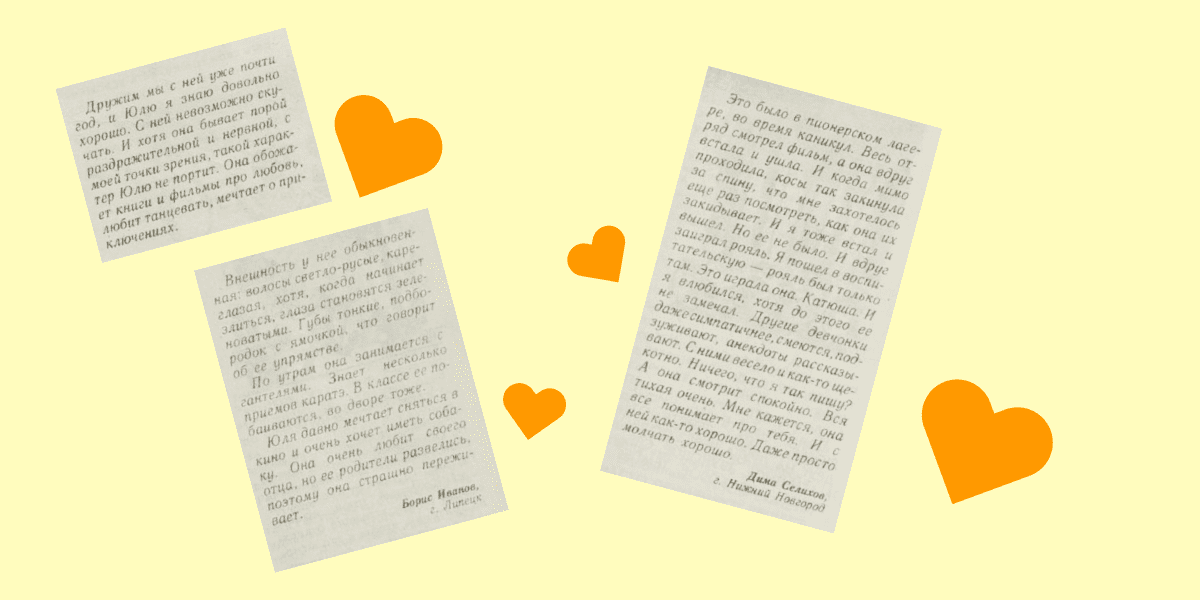 Дружим мы с ней уже почти
год, и Юлю я знаю довольно
хорошо. С ней невозможно ску-
чать. И хотя она бывает порой
раздражительной и нервной, с
моей точки зрения, такой харак-
тер Юлю не портит. Она обожа-
ет книги и фильмы про любовь,
любит танцевать, мечтает о при-
ключениях.
Внешность у нее обыкновен-
ная: волосы светло-русые, каре-
глазая, хотя, когда начинает
злиться, глаза становятся зеле-
новатыми. Губы тонкие, подбо-
родок с ямочкой, что говорит
об ее упрямстве.
По утрам она занимается с
гантелями. Знает несколько
приемов каратэ. В классе ее по-
баиваются, во дворе тоже.
Юля давно мечтает сняться в
кино и очень хочет иметь соба-
ку. Она очень любит своего
отца, но ее родители развелись,
поэтому она страшно пережи-
вает.
Борис Иванов,
г. Липецк
Это было в пионерском лаге-
ре, во время каникул. Весь от-
ряд смотрел фильм, а она вдруг
встала и ушла. И когда мимо
проходила, косы так закинула
за спину, что мне захотелось
еще раз посмотреть, как она их
закидывает. И я тоже встал и
вышел. Но ее не было. И вдруг
заиграл рояль. Я пошел в воспи-
тательскую — рояль был только
там. Это играла она. Катюша. И
я влюбился, хотя до этого ее
не замечал. Другие девчонки
даже симпатичнее, смеются, под-
зуживают, анекдоты рассказы-
вают. С ними весело и как-то ще-
котно. Ничего, что я так пишу?
А она смотрит спокойно. Вся
тихая очень. Мне кажется, она
все понимает про тебя. И с
ней как-то хорошо. Даже просто
молчать хорошо.
Дима Селихов,
г. Нижний Новгород